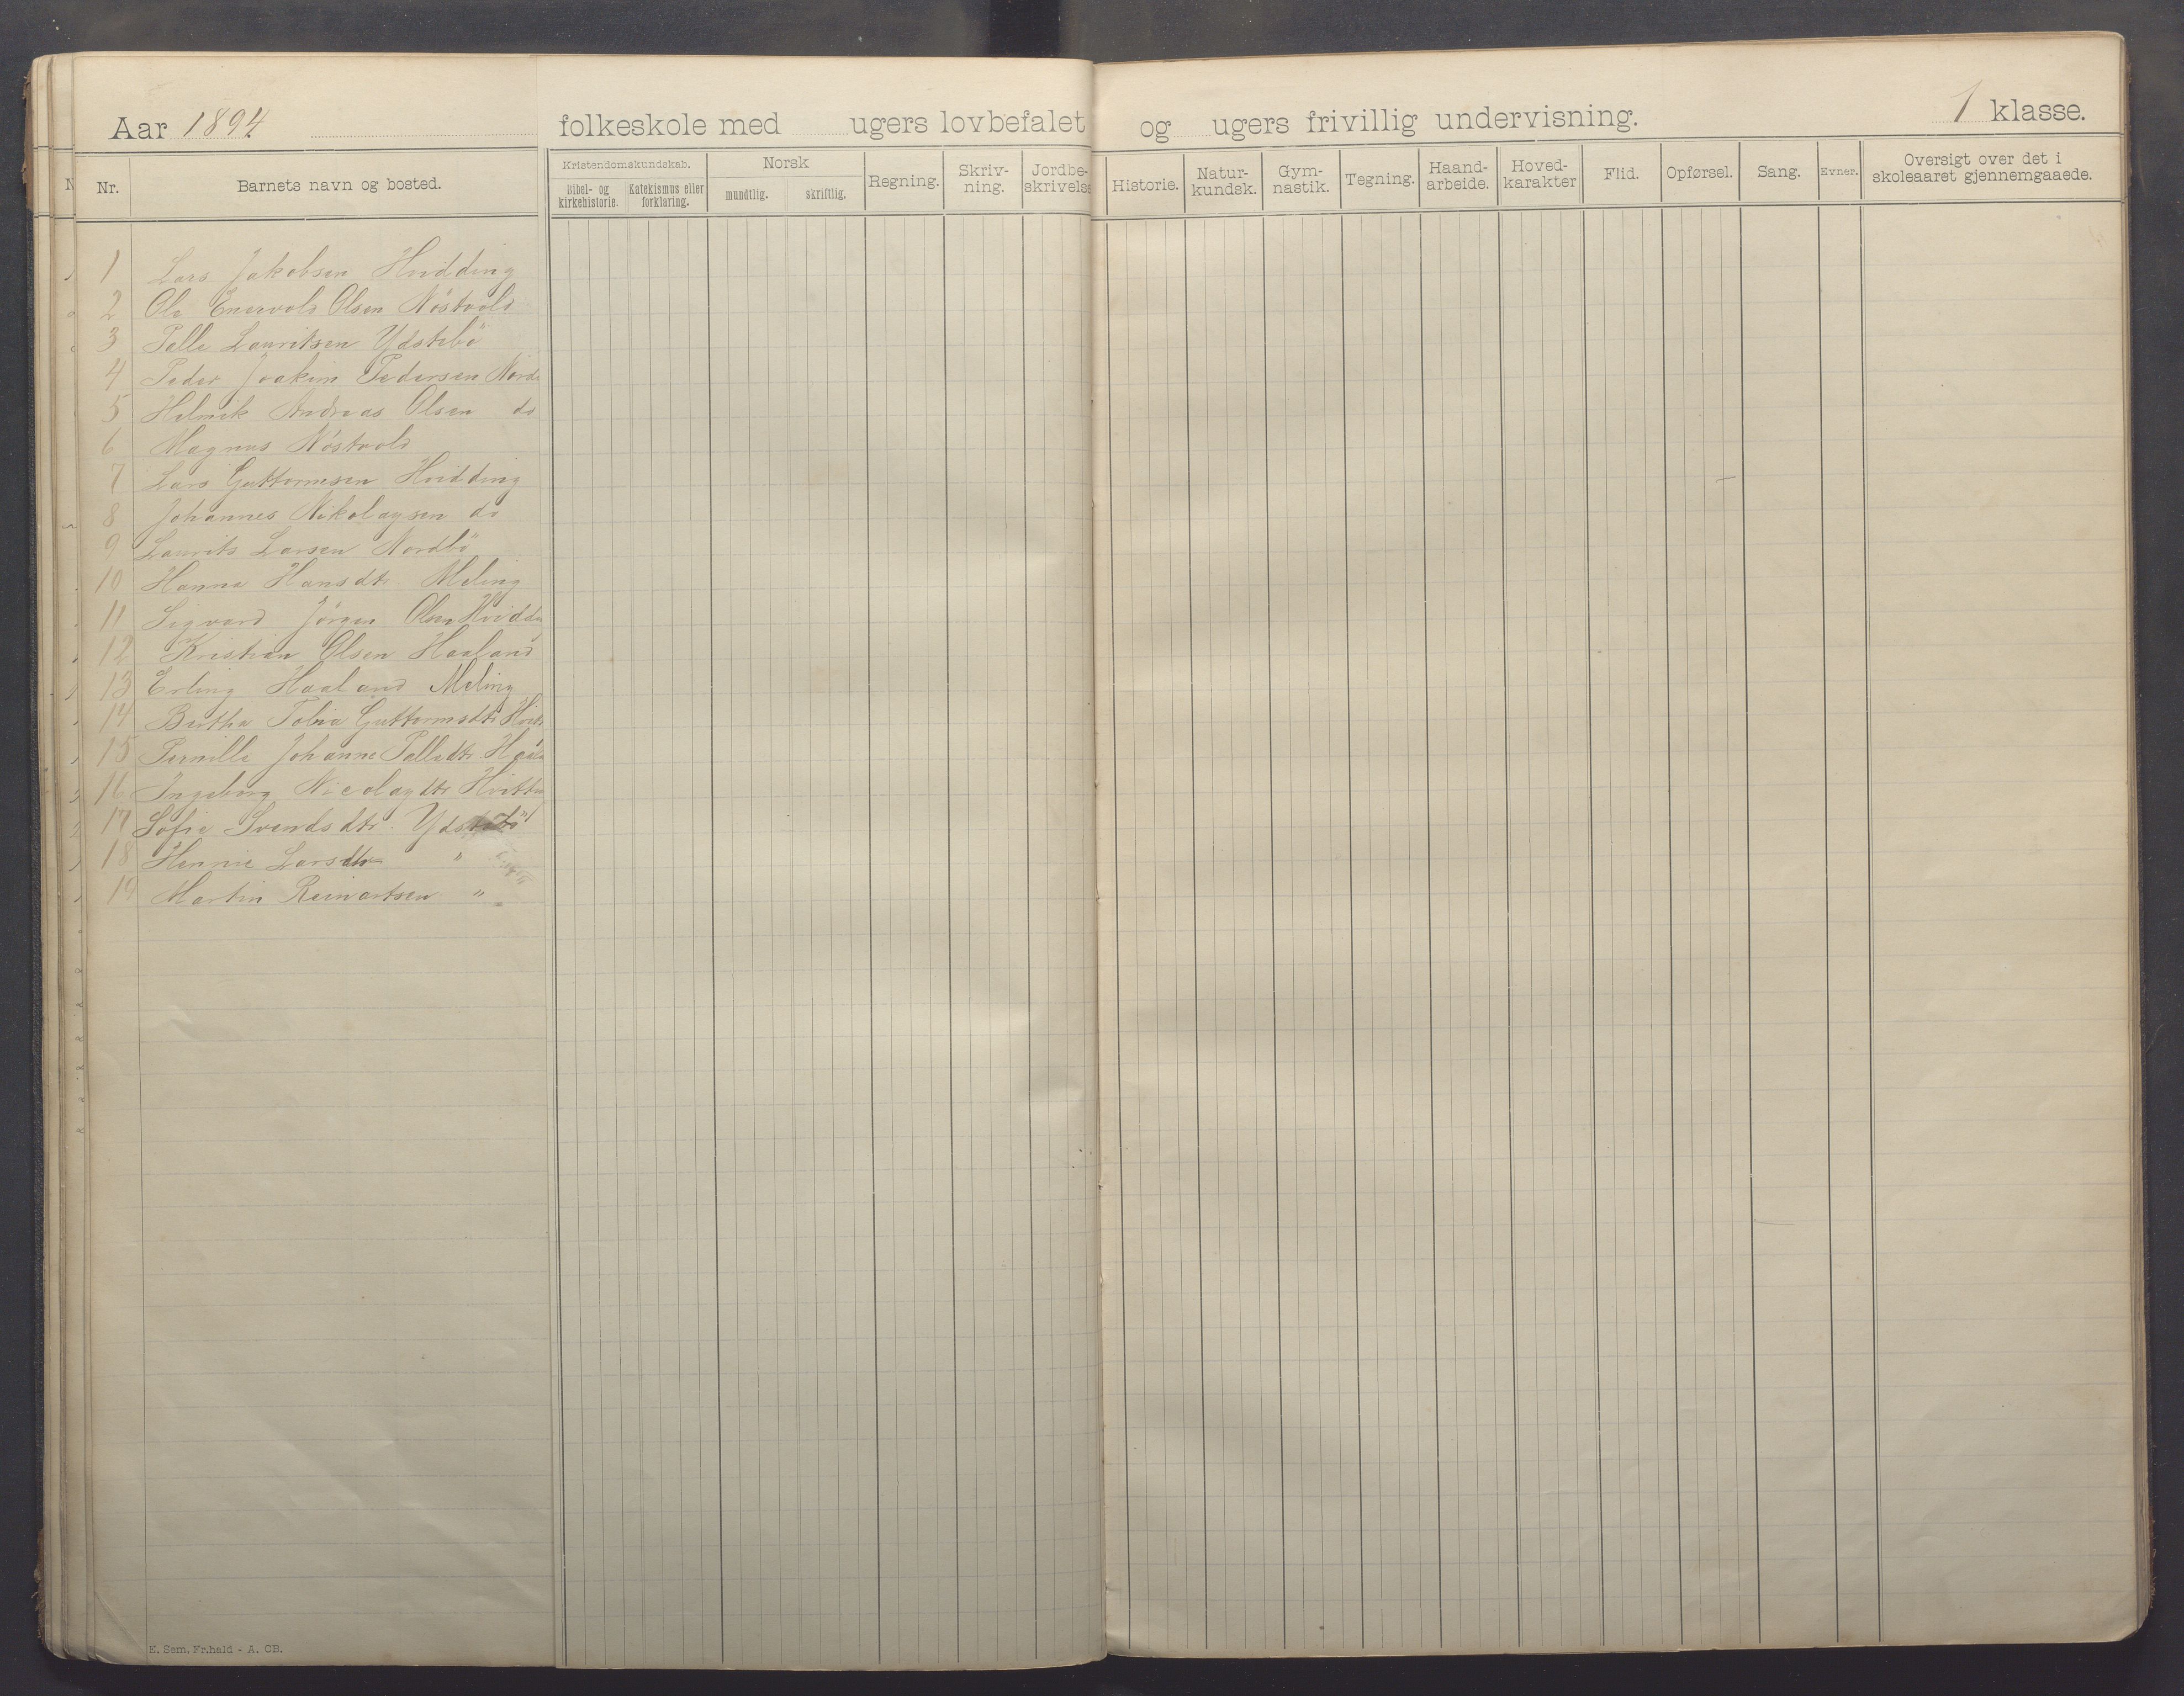 Aar 1894 folkeskole med ugers lovbefalet og ugers frivillig undervisning. 1 klasse.
Nr. Barnets navn og bosted. Kristendomskundskab. Bibel- og kirkehistorie. Katekismus eller forklaring. Norsk mundtlig. skriftlig. Regning. Skriv-ning. Jordbe-skrivelse Historie. Natur-kundsk. Gym-nastik. Tegning. Haand-arbeide. Hoved-karakter Flid. Opførsel. Sang. Evner. Oversigt over det i skoleaaret gjennemgaaede.
1 Lars Jakobsen Hvidding
2 Ole Enevold Olsen Nøstvold
3 Palle Lauritsen Ydstebö
4 Peder Joakim Pedersen Nord
5 Helmik Andreas Olsen do
6 Magnus Nøstvold
7 Lars Guttormsen Hvidding
8 Johannes Nikolaysen do
9 Laurits Larsen Nordbö
10 Hanna Hansdtr. Meling
11 Sigvard Jörgen Olsen Hvidding
12 Kristian Olsen Haaland
13 Erling Haaland Meling
14 Bertha Tobia Guttormsdtr
15 Pernille Johanne Palledtr. Haala
16 Ingeborg Nicolaydtr Hvitti
17 Sofie Svendsdtr. Ydstebö
18 Hennie Larsdtr "
19 Martin Reinartsen "
E. Sem, Fr.hald - A. CB.